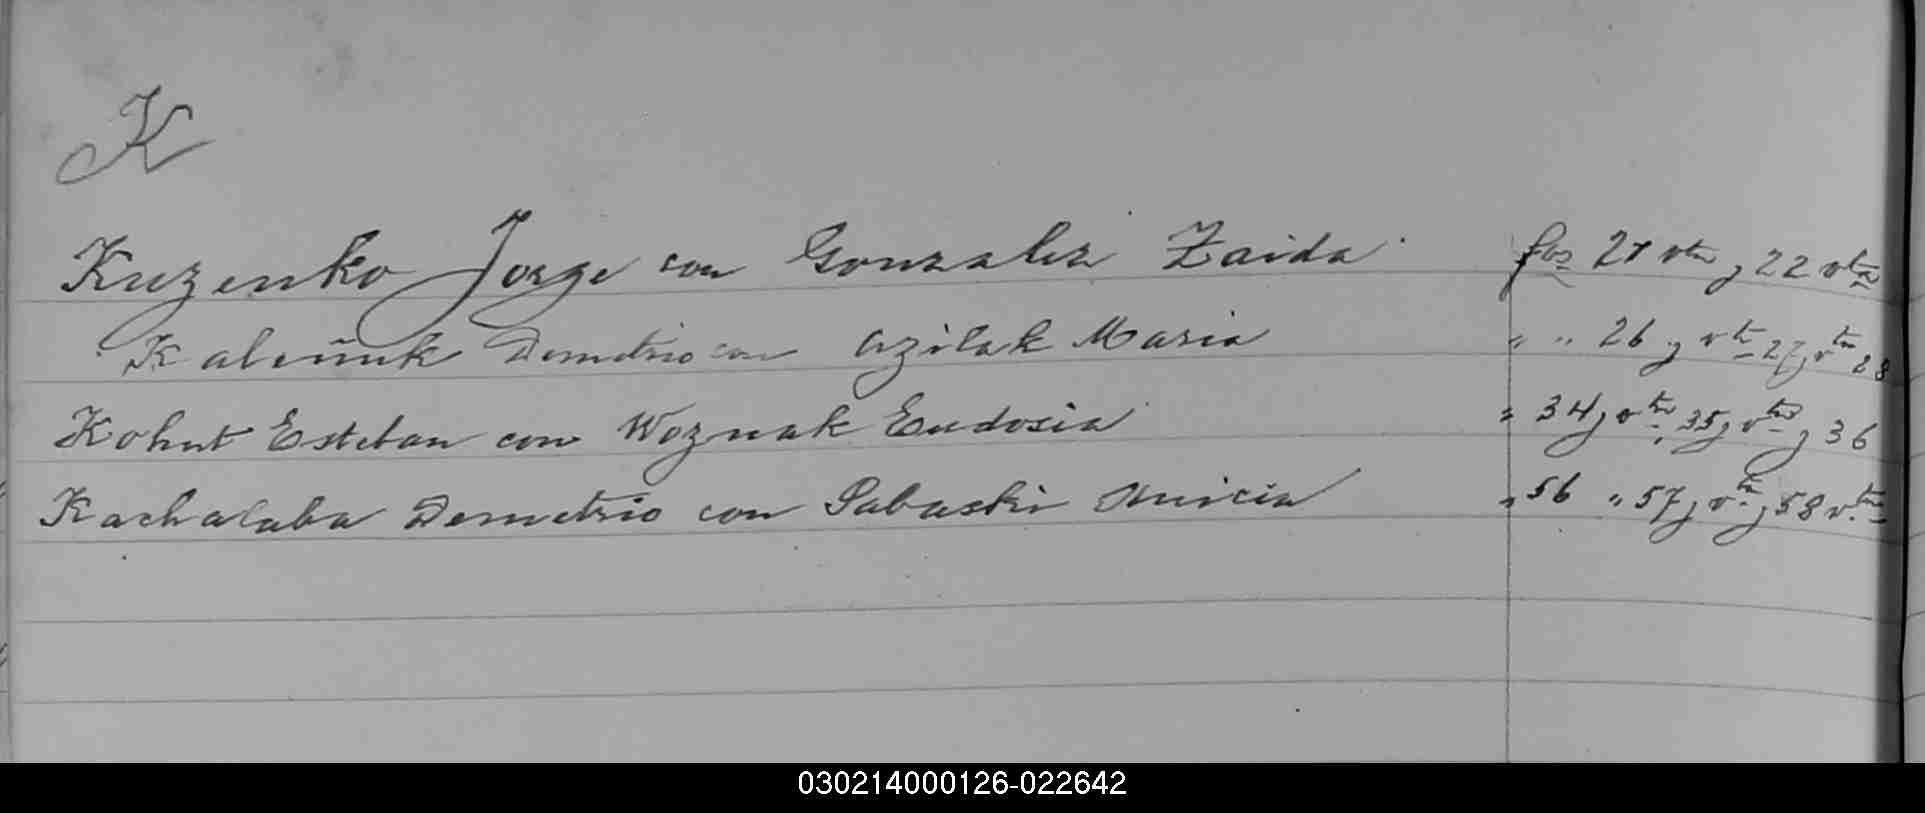 K
Kuzenko Jorge con Gonzalez Zaida fos 21 vta y 22 vta
Kaleñuk Demetrio con Maria " " 26 y vta 27 y vta 28
Kohut Esteban con Woznak Eudosia " 34 y vta, 35 y vta y 36
Kachalaba Demetrio con Sabaski " 56 " 57 y vta y 58 vta
030214000126-022642